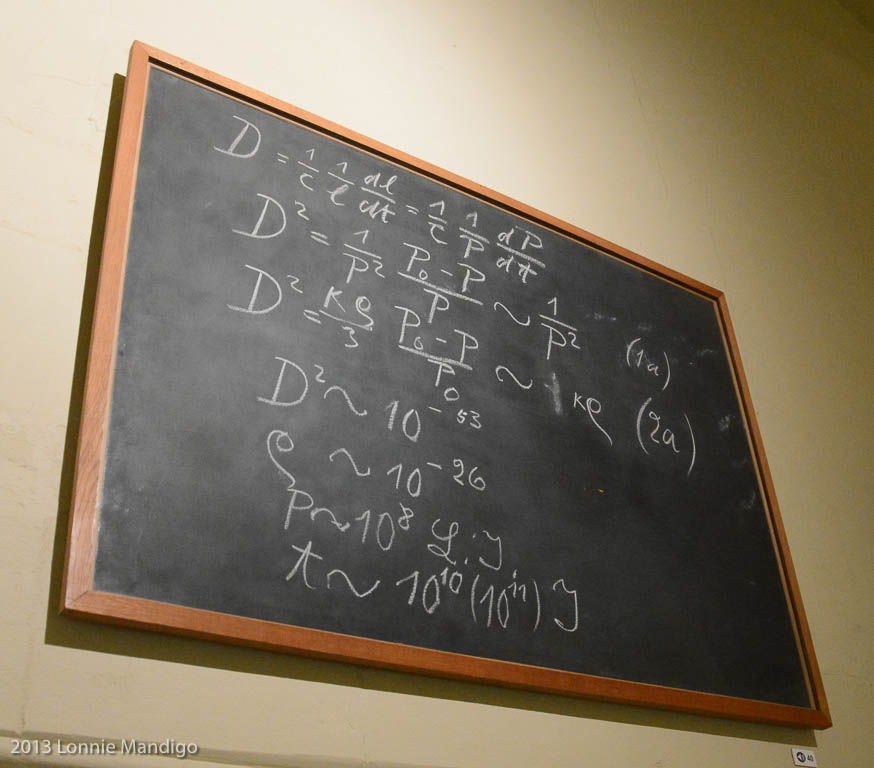 D = 1/c 1/l dl/dt = 1/c 1/P dP/dt
D² = 1/P² P₀-P/P ~ 1/P² (1a)
D² = κρ/3 P₀-P/P₀ ~ κρ (2a)
D² ~ 10⁻⁵³
ρ ~ 10⁻²⁶
P ~ 10⁸ L.J
t ~ 10¹⁰(10¹¹) J
2013 Lonnie Mandigo
40